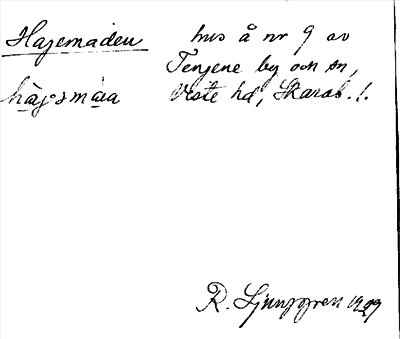 Hagemaden hus å nr 9 av
Tengene by och sn,
håjesmáa Viste hd, Skarab. l.
R. Ljunggren 1929